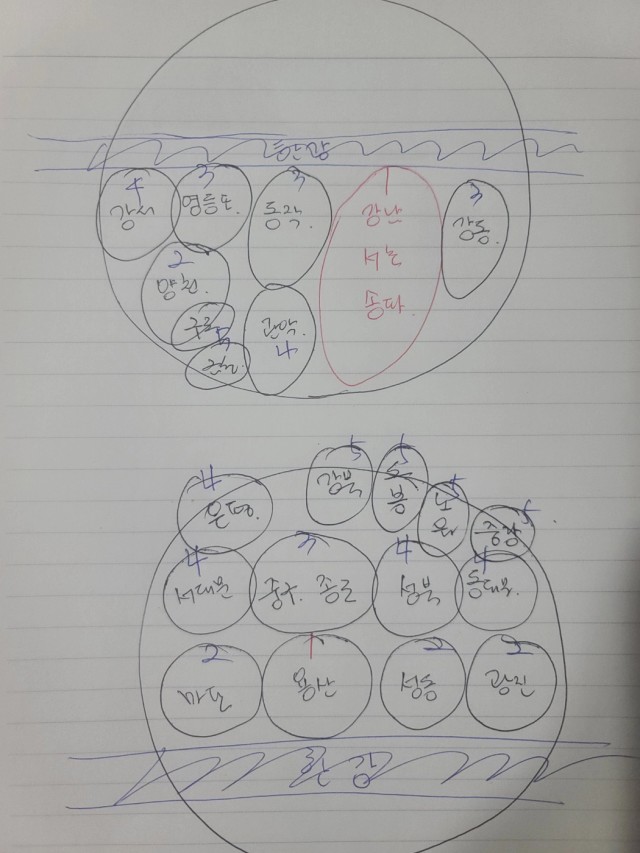 한강
4 3 3 1 3
강서 영등포. 동작. 강남 강동.
서초
송파.
2
양천.
구로 5
관악
4
한강
5 5
강북 도봉
4 5 5
은평. 노원 중랑
4 3 4 4
서대문 중구. 종로 성북 동대문.
2 1 2 2
마포 용산 성동 광진